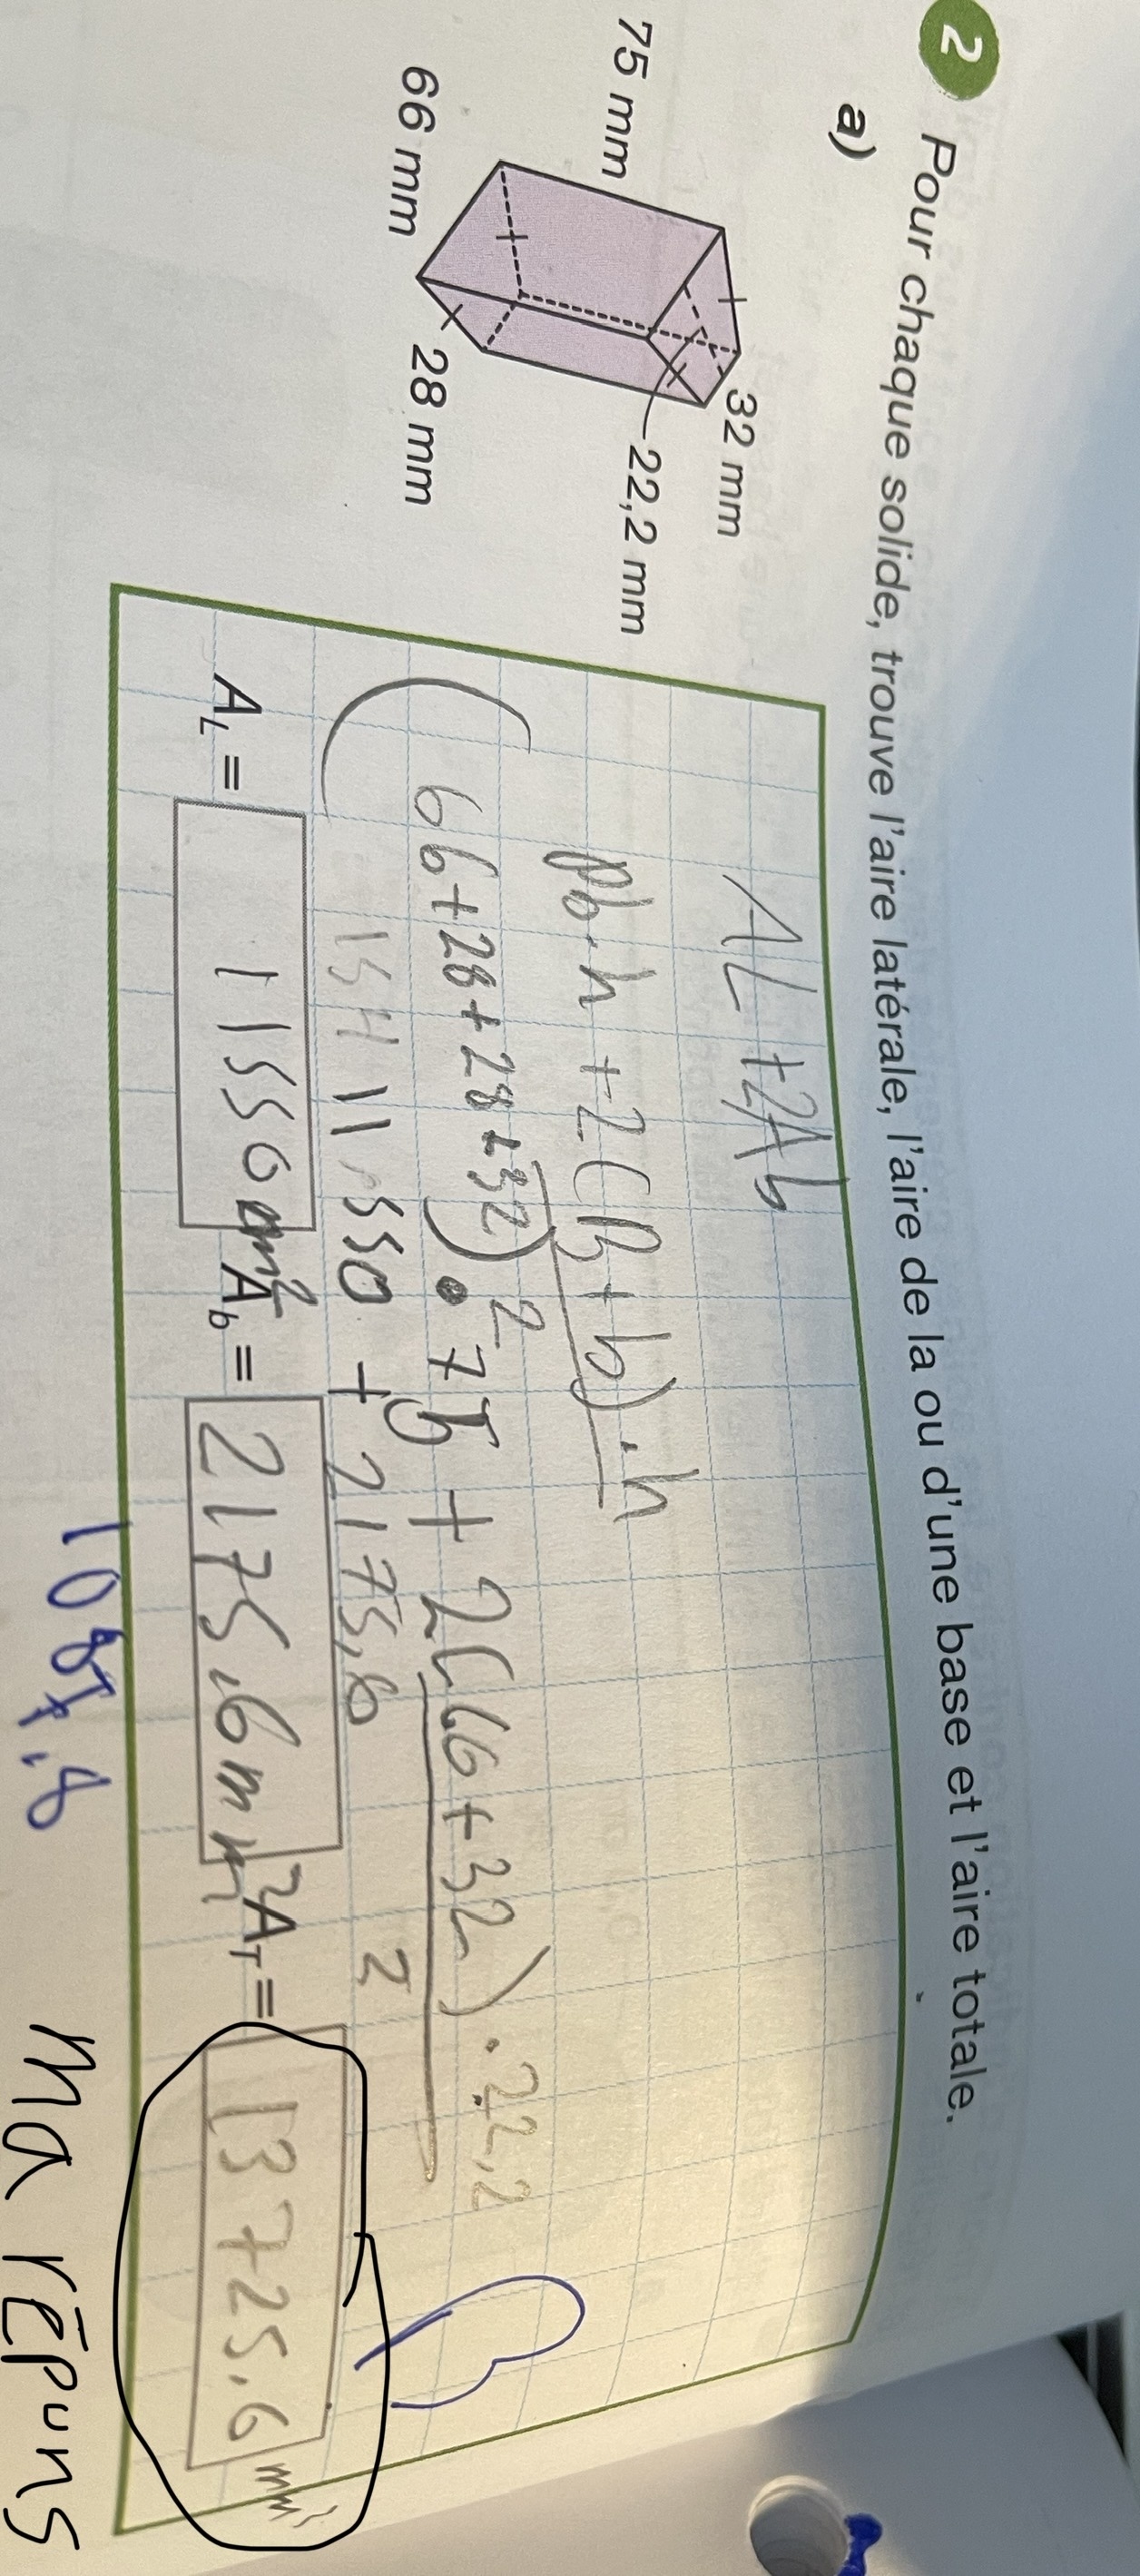 2 Pour chaque solide, trouve l'aire latérale, l'aire de la ou d'une base et l'aire totale.
a)
75 mm
32 mm
22,2 mm
66 mm
28 mm
AL + 2Ab
Pb · h + 2 (B + b) · h
2
(66 + 28 + 28 + 32) · 75 + 2 (66 + 32) · 22,2
2
154 11 550 + 2175,6
AL = 11550 mm² Ab = 2175,6 mm² AT = 13725.6 mm²
1087.8
ma répons